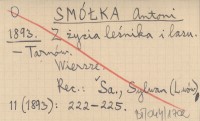 SMÓŁKA Antoni
1893. Z życia leśnika i lasu.
– Tarnów.
Wiersze.
Rec.: Sa., Sylwan (Lwów)
11 (1893): 222–225.